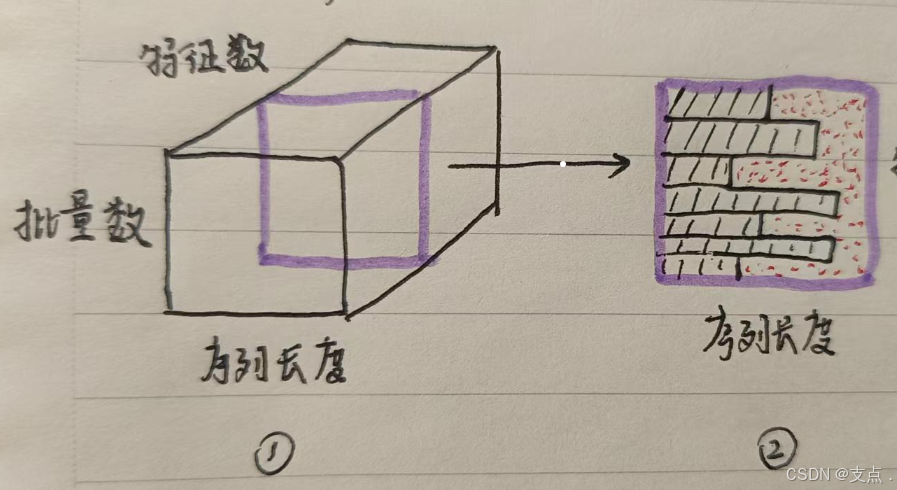 特征数
批量数
序列长度
序列长度
①
②
CSDN @支点 .